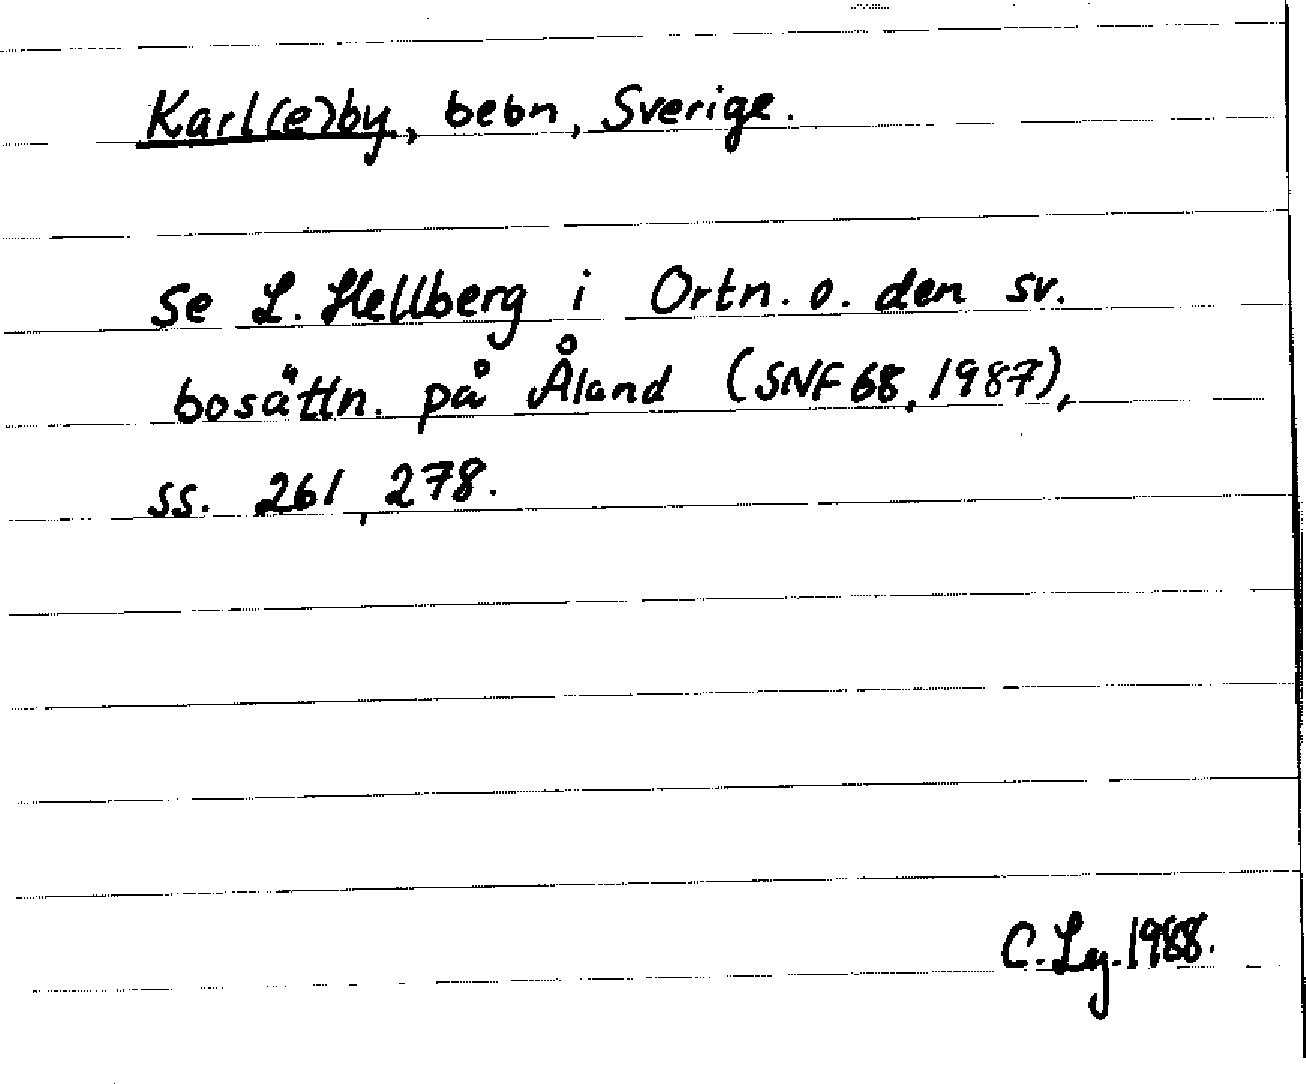 Karl(e)by, bebn, Sverige.
Se L. Hellberg i Ortn. o. den sv.
bosättn. på Åland (SNF 68, 1987),
ss. 261, 278.
C. Lg. 1988.